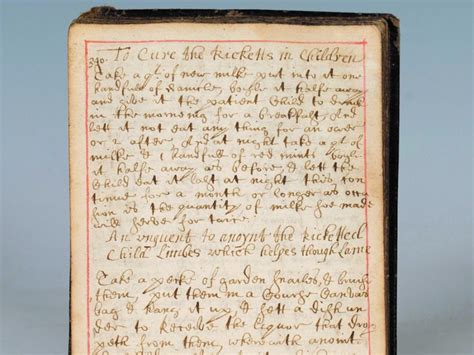 To Cure the Ricketts in Children
340. Take a qt of new milke put into it one
handfull of
boyle it halfe away
and give it the patient Child to drink
in the morneing for a breakfast, And
lett it not eat any thing for an ower
or 2 after And at night take a qt of
milke & 1 handfull of red mints boyle
it halfe away as before, & lett the
Child eat it last at night this con
tinue for a month or longer as occa
sion is the quantity of milke soe made
will serve for twice.
An unguent to anoynt the Ricketted
Child Limbes which helpes though Lame
Take a pecke of garden snailes, & bruise
them, put them in a Course Canvas
bag & hang it up, & sett a dish un
der to Receive the Liquor that drop
peth from them, wherewith anoint